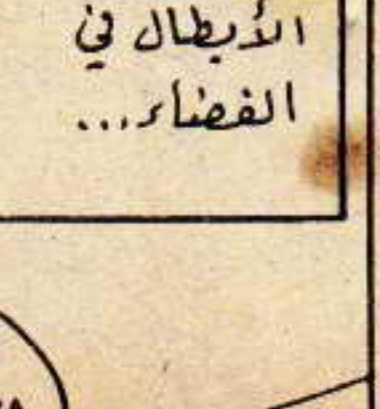 الأبطال في
الفضاء...